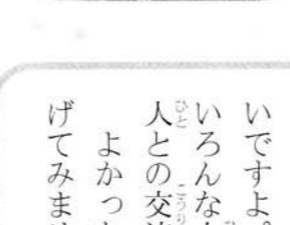 いですよ。
いろんな
人との交
よかっ
げてみま